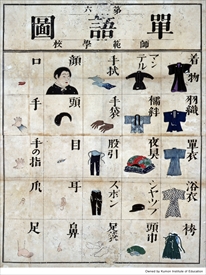 第六
單語圖
師範學校
着物
羽織
單衣
浴衣
袴
マンテル
襦袢
夜具
シャツ
頭巾
手拭
手袋
股引
ズボン
足袋
顔
頭
目
耳
鼻
口
手
手の指
爪
足
Owned by Kumon Institute of Education